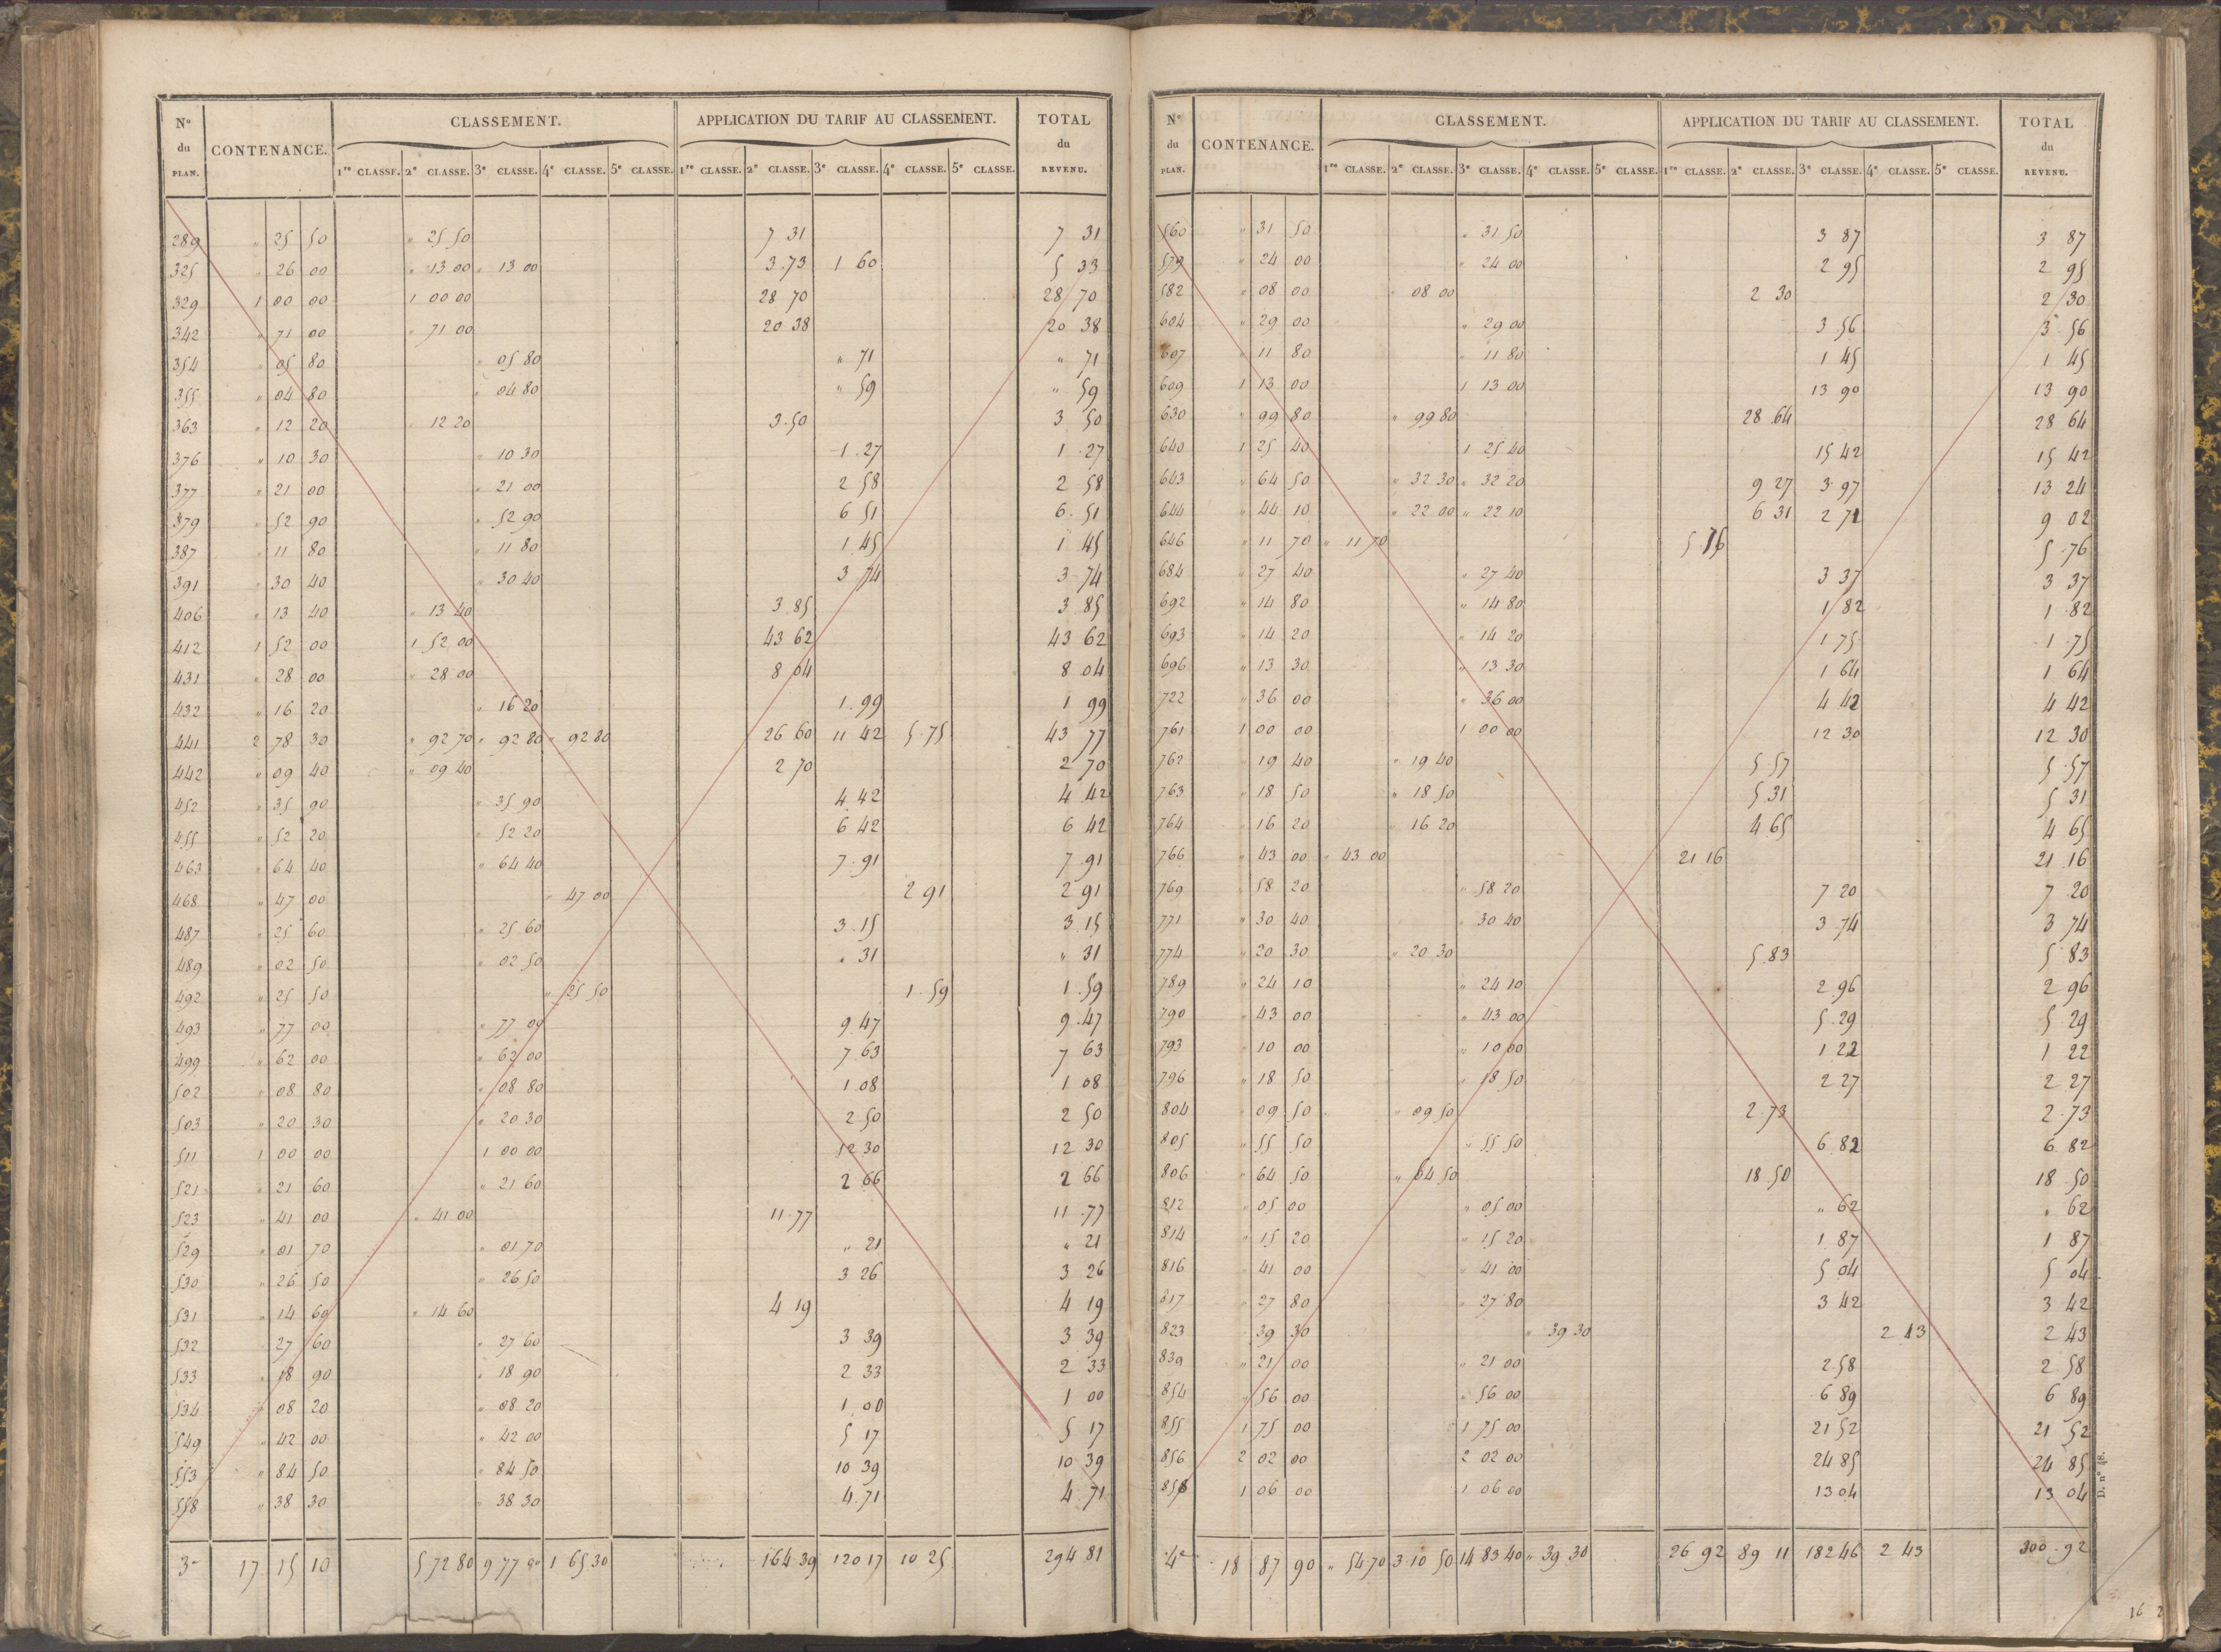 N° du PLAN. CONTENANCE. CLASSEMENT. APPLICATION DU TARIF AU CLASSEMENT. TOTAL du REVENU.
1re CLASSE. 2e CLASSE. 3e CLASSE. 4e CLASSE. 5e CLASSE. 1re CLASSE. 2e CLASSE. 3e CLASSE. 4e CLASSE. 5e CLASSE.
289 " 25 50 " 25 50 7 31 7 31
325 " 26 00 " 13 00 " 13 00 3.73 1 60 5 33
329 1 00 00 1 00 00 28 70 28 70
342 " 71 00 " 71 00 20 38 20 38
354 " 05 80 " 05 80 " 71 " 71
355 " 04 80 " 04 80 " 59 " 59
363 " 12 20 " 12 20 3.50 3 50
376 " 10 30 " 10 30 1.27 1.27
377 " 21 00 " 21 00 2 58 2 58
379 " 52 90 " 52 90 6 51 6.51
387 " 11 80 " 11 80 1.45 1 45
391 " 30 40 " 30 40 3 74 3 74
406 " 13 40 " 13 40 3.85 3 85
412 1 52 00 1 52 00 43 62 43 62
431 " 28 00 " 28 00 8 04 8 04
432 " 16 20 " 16 20 1.99 1 99
441 2 78 30 " 92 70 " 92 80 " 92 80 26 60 11 42 5.75 43 77
442 " 09 40 " 09 40 2 70 2 70
452 " 35 90 " 35 90 4 42 4 42
455 " 52 20 " 52 20 6 42 6 42
463 " 64 40 " 64 40 7.91 7.91
468 " 47 00 " 47 00 2 91 2 91
487 " 25 60 " 25 60 3.15 3.15
489 " 02 50 " 02 50 " 31 " 31
492 " 25 50 " 25 50 1.59 1.59
493 " 77 00 " 77 00 9.47 9.47
499 " 62 00 " 62 00 7.63 7 63
502 " 08 80 " 08 80 1 08 1 08
503 " 20 30 " 20 30 2 50 2 50
511 1 00 00 1 00 00 12 30 12 30
521 " 21 60 " 21 60 2 66 2 66
523 " 41 00 " 41 00 11.77 11.77
529 " 01 70 " 01 70 " 21 " 21
530 " 26 50 " 26 50 3 26 3 26
531 " 14 60 " 14 60 4 19 4 19
532 " 27 60 " 27 60 3 39 3 39
533 " 18 90 " 18 90 2 33 2 33
534 " 08 20 " 08 20 1.00 1 00
549 " 42 00 " 42 00 5 17 5 17
553 " 84 50 " 84 50 10 39 10 39
558 " 38 30 " 38 30 4.71 4.71
3e 17 15 10 5 72 80 9 77 00 1 65 30 164 39 120 17 10 25 294 81
N° du PLAN. CONTENANCE. CLASSEMENT. APPLICATION DU TARIF AU CLASSEMENT. TOTAL du REVENU.
1re CLASSE. 2e CLASSE. 3e CLASSE. 4e CLASSE. 5e CLASSE. 1re CLASSE. 2e CLASSE. 3e CLASSE. 4e CLASSE. 5e CLASSE.
560 " 31 50 " 31 50 3 87 3 87
579 " 24 00 " 24 00 2 95 2 95
582 " 08 00 " 08 00 2 30 2 30
604 " 29 00 " 29 00 3 56 3 56
607 " 11 80 " 11 80 1 45 1 45
609 1 13 00 1 13 00 13 90 13 90
630 " 99 80 " 99 80 28 64 28 64
640 1 25 40 1 25 40 15 42 15 42
643 " 64 50 " 32 30 " 32 20 9 27 3.97 13 24
644 " 44 10 " 22 00 " 22 10 6 31 2 71 9 02
646 " 11 70 " 11 70 5 76 5.76
684 " 27 40 " 27 40 3 37 3 37
692 " 14 80 " 14 80 1 82 1 82
693 " 14 20 " 14 20 1 75 1.75
696 " 13 30 " 13 30 1 64 1 64
722 " 36 00 " 36 00 4 42 4 42
761 1 00 00 1 00 00 12 30 12 30
762 " 19 40 " 19 40 5.57 5.57
763 " 18 50 " 18 50 5.31 5 31
764 " 16 20 " 16 20 4.65 4 65
766 " 43 00 " 43 00 21 16 21.16
769 " 58 20 " 58 20 7 20 7 20
771 " 30 40 " 30 40 3 74 3 74
774 " 20 30 " 20 30 5.83 5 83
789 " 24 10 " 24 10 2.96 2 96
790 " 43 00 " 43 00 5.29 5 29
793 " 10 00 " 10 00 1 22 1 22
796 " 18 50 " 18 50 2 27 2 27
804 " 09 50 " 09 50 2.73 2.73
805 " 55 50 " 55 50 6 82 6 82
806 " 64 50 " 64 50 18 50 18 50
812 " 05 00 " 05 00 " 62 " 62
814 " 15 20 " 15 20 1 87 1 87
816 " 41 00 " 41 00 5 04 5 04
817 " 27 80 " 27 80 3 42 3 42
823 " 39 30 " 39 30 2 43 2 43
839 " 21 00 " 21 00 2.58 2 58
854 " 56 00 " 56 00 6 89 6 89
855 1 75 00 1 75 00 21 52 21 52
856 2 02 00 2 02 00 24 85 24 85
858 1 06 00 1 06 00 13 04 13 04
4e 18 87 90 " 54 70 3 10 50 14 83 40 " 39 30 26 92 89 11 182 46 2 43 300.92
D. n° 48.
16